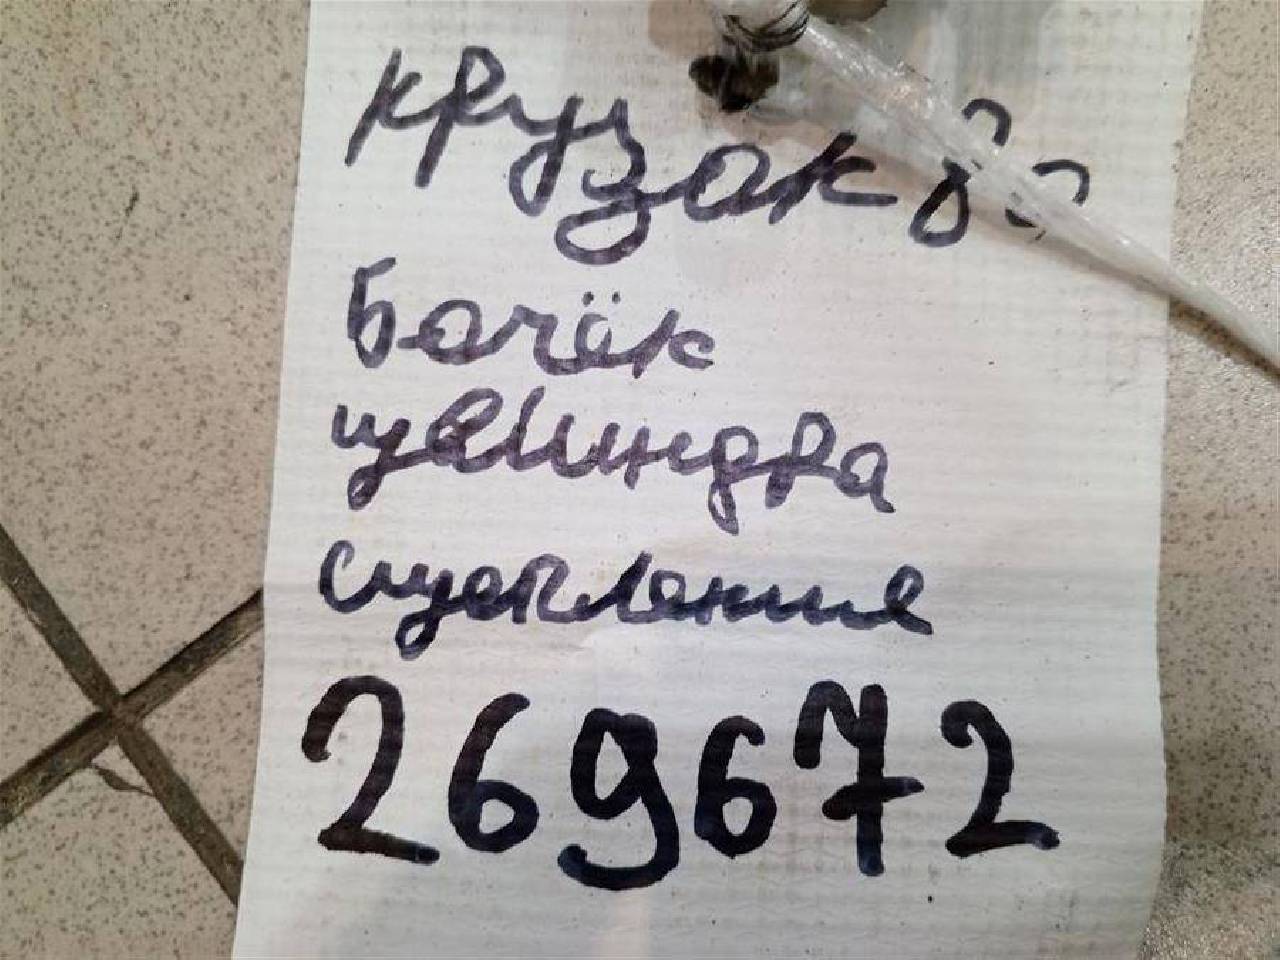 крузак 80
Бачёк
цылиндра
сцепление
269672